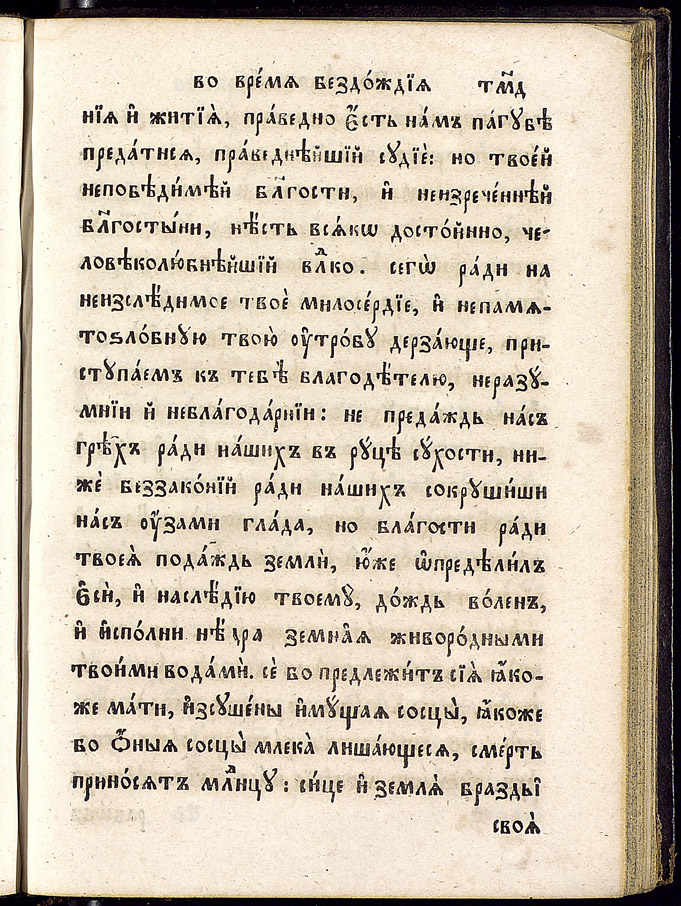 во вре́мѧ бездо́ждїѧ тм҃д
нїѧ и҆ житїѧ̀, пра́ведно є҆́сть на́мъ па́гꙋбѣ
преда́тисѧ, пра́веднѣйшїй сꙋдїѐ: но твое́й
непобѣди́мѣй бл҃гости, и҆ неизрече́ннѣй
бл҃госты́ни, нѣ́сть всѧ́кѡ досто́йнно, че-
ловѣколю́бнѣйшїй влⷣко. сегѡ̀ ра́ди на
неизслѣ́димое твоѐ милосе́рдїе, и҆ непамѧ-
тоѕло́бнꙋю твою̀ ᲂу҆тро́бꙋ дерза́юще, при-
стꙋпа́емъ къ тебѣ̀ благодѣ́телю, неразꙋ́-
мнїи и҆ неблагода́рнїи: не преда́ждь на́съ
грѣ̑хъ ра́ди на́шихъ въ рꙋцѣ̀ сꙋ́хости, ни-
жѐ беззако́нїй ра́ди на́шихъ сокрꙋши́ши
на́съ ᲂу҆́зами гла́да, но бла́гости ра́ди
твоеѧ̀ пода́ждь землѝ, ю҆́же ѡ҆предѣли́лъ
є҆сѝ, и҆ наслѣ́дїю твоемꙋ̀, до́ждь во́ленъ,
и҆ и҆спо́лни нѣ́дра земна̑ѧ живоро́дными
твои́ми вода́ми. сѐ бо предлежи́тъ сїѧ̀ ꙗ҆́ко-
же ма́ти, и҆зсꙋшє́ны и҆мꙋ́щаѧ сосцы̀, ꙗ҆́коже
бо ѻ҆́ныѧ сосцы̀ млека̀ лиша́ющесѧ, сме́рть
прино́сѧтъ млⷣнцꙋ: си́це и҆ землѧ̀ бразды̑
своѧ̑